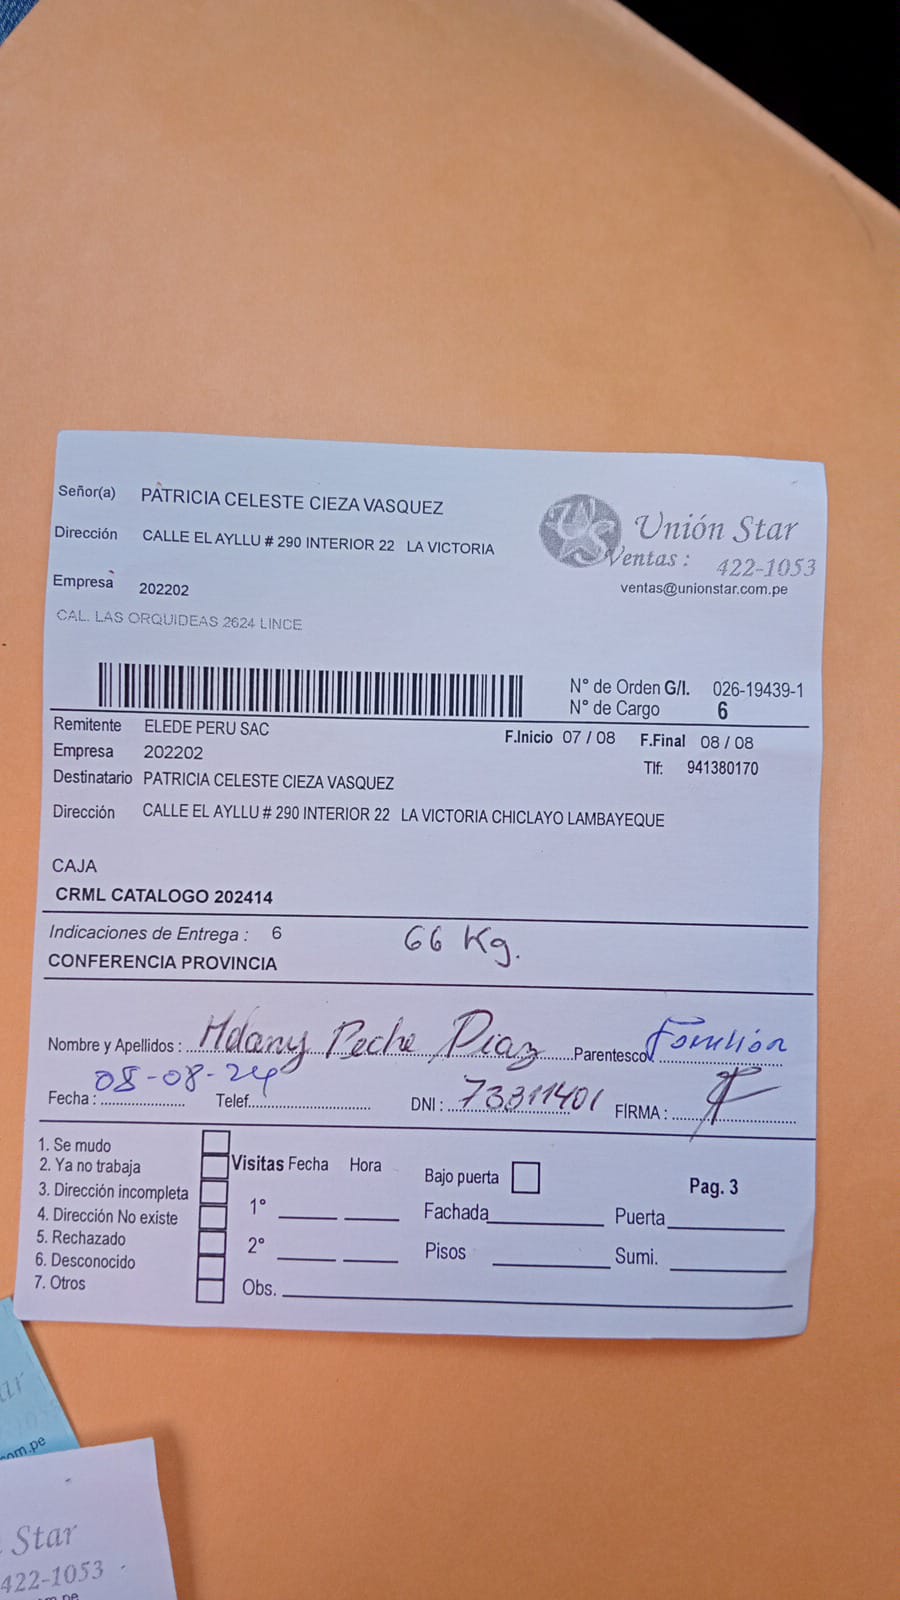 Señor(a) PATRICIA CELESTE CIEZA VASQUEZ
Dirección CALLE EL AYLLU # 290 INTERIOR 22 LA VICTORIA
Empresa 202202
CAL. LAS ORQUIDEAS 2624 LINCE
US Unión Star
Ventas : 422-1053
ventas@unionstar.com.pe
N° de Orden G/I. 026-19439-1
N° de Cargo 6
Remitente ELEDE PERU SAC
F.Inicio 07 / 08 F.Final 08 / 08
Empresa 202202
Tlf: 941380170
Destinatario PATRICIA CELESTE CIEZA VASQUEZ
Dirección CALLE EL AYLLU # 290 INTERIOR 22 LA VICTORIA CHICLAYO LAMBAYEQUE
CAJA
CRML CATALOGO 202414
Indicaciones de Entrega : 6 66 Kg.
CONFERENCIA PROVINCIA
Nombre y Apellidos : Peche Diaz Parentesco
Fecha : 08-08-24 Telef. DNI : 73311401 FIRMA :
1. Se mudo
2. Ya no trabaja
3. Dirección incompleta
4. Dirección No existe
5. Rechazado
6. Desconocido
7. Otros
Visitas Fecha Hora
1°
2°
Obs.
Bajo puerta
Pag. 3
Fachada Puerta
Pisos Sumi.
ar
com.pe
Star
422-1053